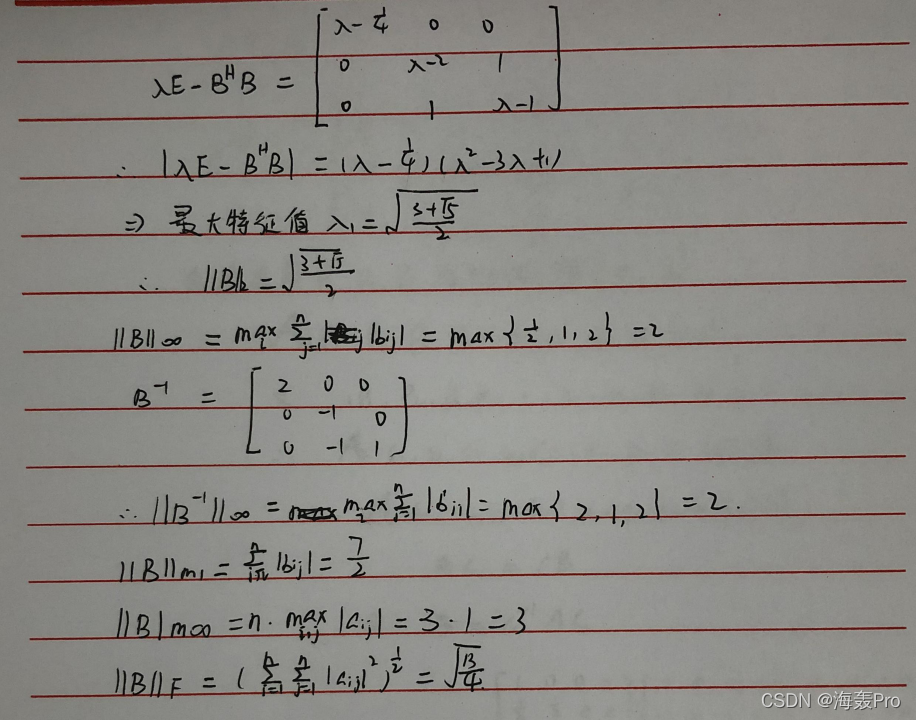 λE - BᴴB = [ λ-¼ 0 0
0 λ-2 1
0 1 λ-1 ]
∴ |λE - BᴴB| = (λ-¼)(λ²-3λ+1)
⇒ 最大特征值 λ₁ = √((3+√5)/2)
∴ ||B||₂ = √((3+√5)/2)
||B||∞ = max_i Σ_{j=1}^n |bij| = max{½, 1, 2} = 2
B⁻¹ = [ 2 0 0
0 -1 0
0 -1 1 ]
∴ ||B⁻¹||∞ = max_i Σ_{j=1}^n |b'ij| = max{2, 1, 2} = 2.
||B||m₁ = Σ |bij| = 7/2
||B|m∞ = n · max_{i,j} |aij| = 3 · 1 = 3
||B||F = (Σ_{i=1}^n Σ_{j=1}^n |aij|²)^½ = √(13/4).
CSDN @海轰Pro